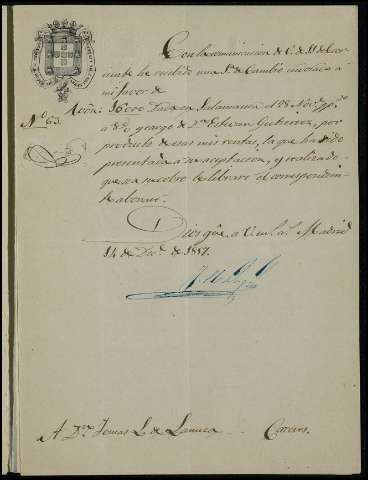 Con la comunicacion de V. S. de 11 del cor
riente he recibido una Lª de Cambio endosada a
mi favor de
Rvon: 36000 Dada en Salamanca el 28 Nov.e pp.º
Nº 63.
a 8 d/v y cargo de D.n Esteban Gutierrez, por
producto de esas mis rentas, la que ha sido
presentada a su aceptacion, y realizado
que sea su cobro le librare el correspondien
te abonaré.
Dios gue. a V. m.s a.s Madrid
14 de Dic.e de 1857.
A D.n Tomas L. de Lanuza
Cáceres.